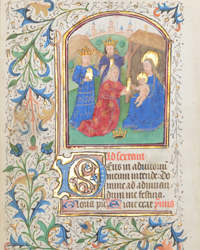 Ad sextam
Deus in adiutoriu
meum intende. Do
mine ad adiuuan
dum me festina.
Gloria pri Sicut erat